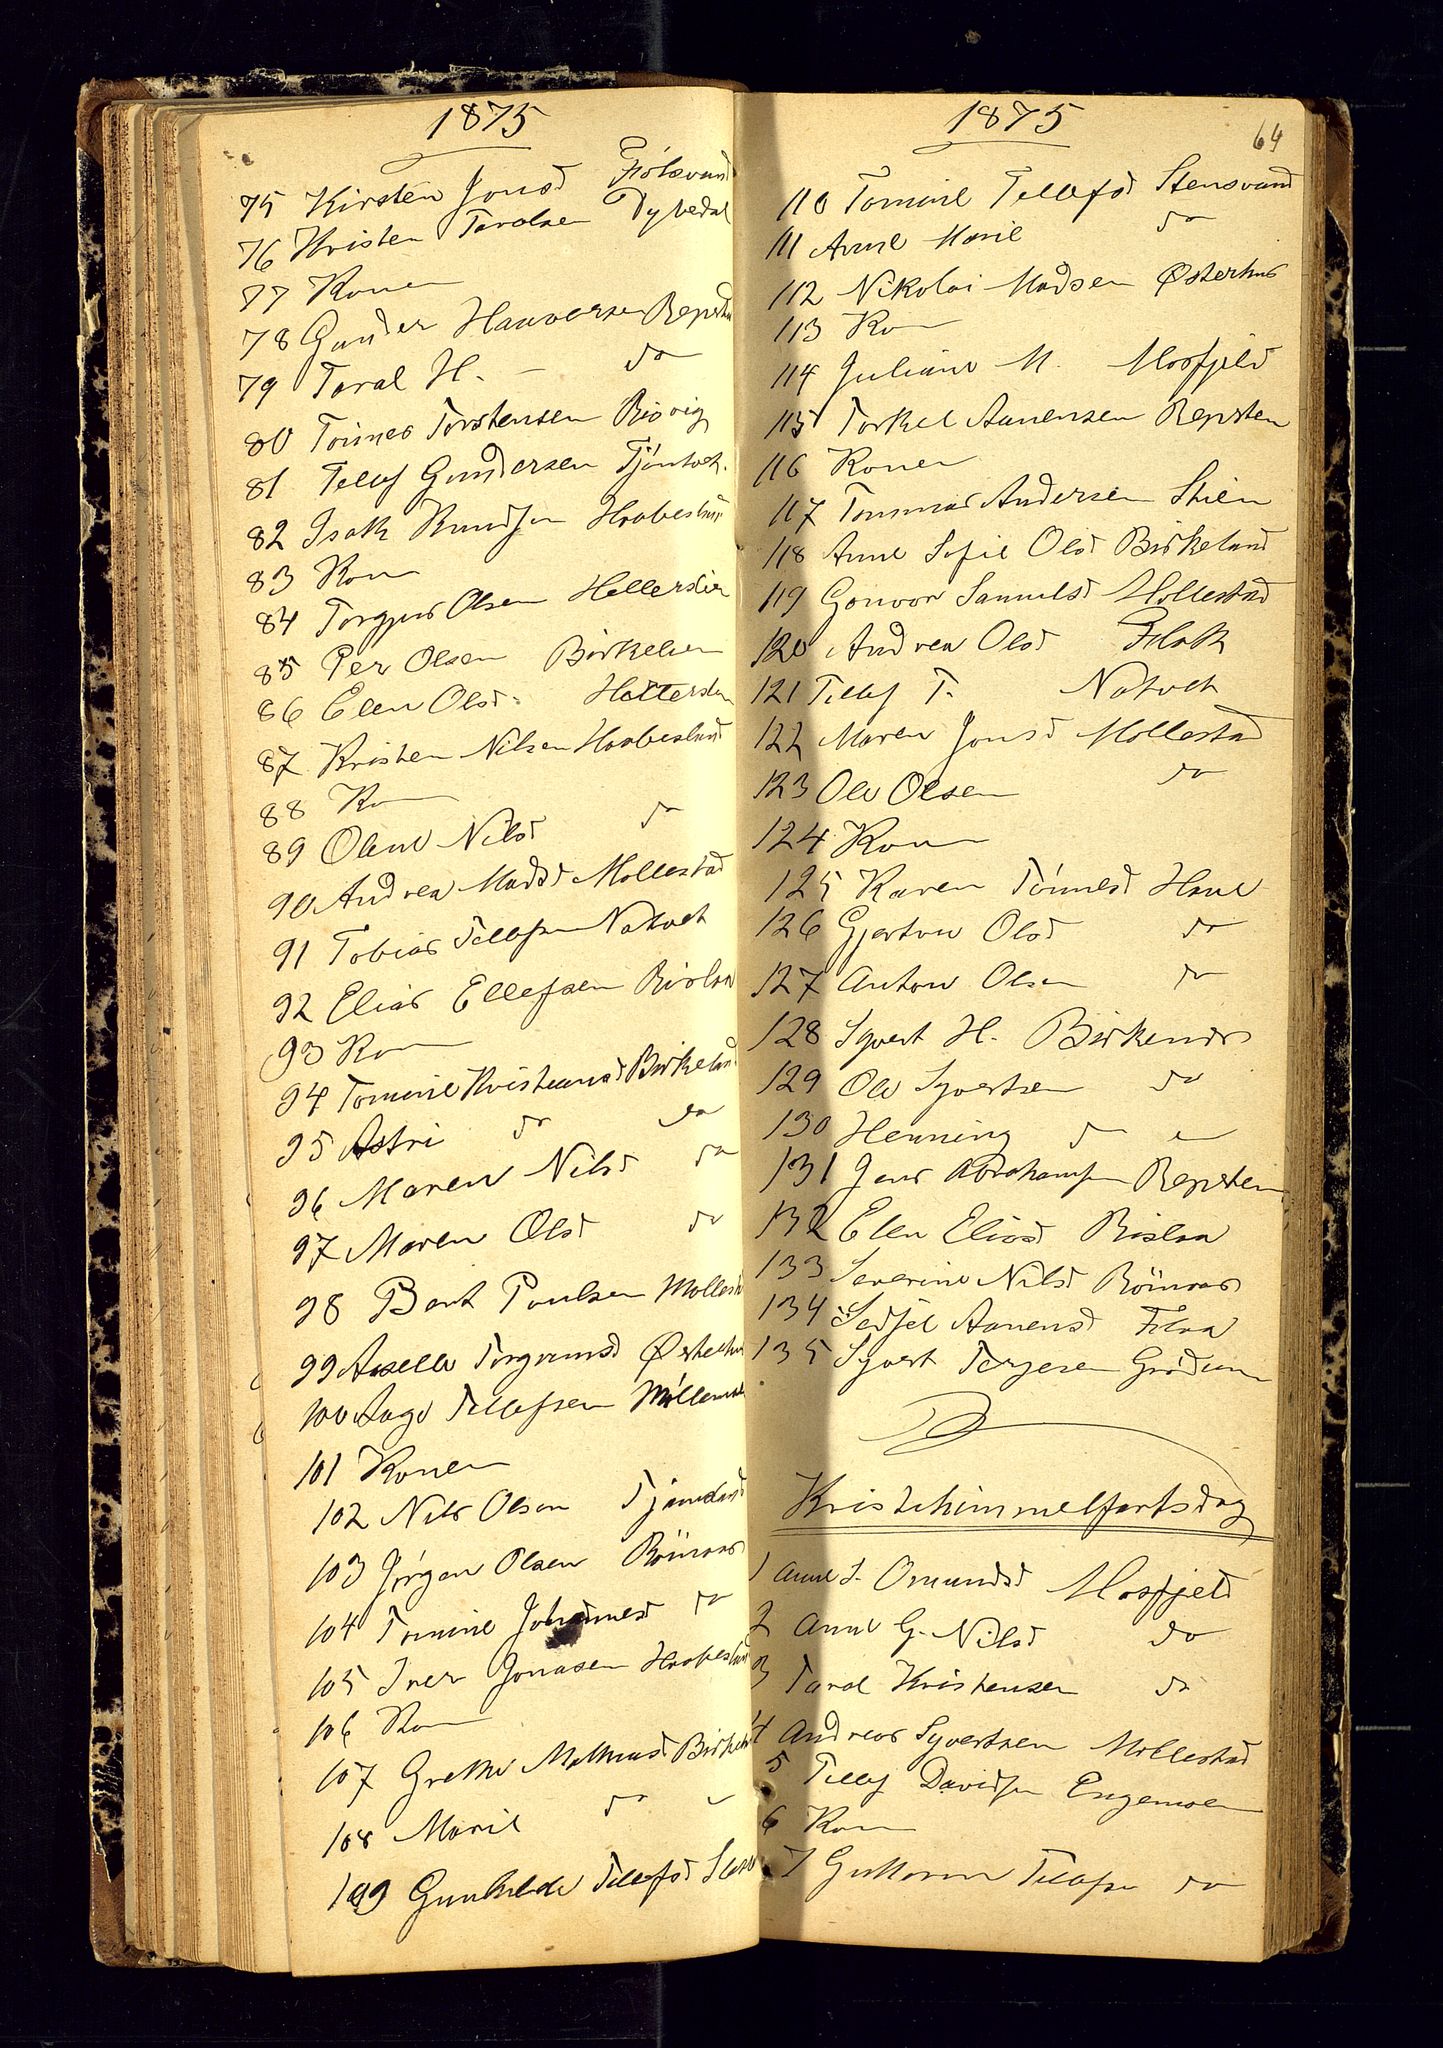 1875
75 Kirsten Jonsd
76 Kristen Tarolsen Dybedal
77 Konen
78 Gunder Haaversen Repsta
79 Tarol H. - do
80 Tønnes Torstensen Risvig
81 Tellef Gundersen
82 Isak Knudsen
83 Kon
84 Torgjus Olsen
85 Per Olsen
86 Elen Olsd.
87 Kristen Nilsen Haabesland
88 Kon
89 Oline Nilsd do
90 Andrea Madsd Mollestad
91 Tobias Tellefsen Natvet
92 Elias Ellefsen Rislaa
93 Kon
94 Tomine Kristensd Birkeland
95 Astri do do
96 Maren Nilsd do
97 Maren Olsd do
98 Bent Poulsen Mollest
99 Torgrimsd Østerhu
100 Aage Tellefsen
101 Konen
102 Nils Olsen
103 Jørgen Olsen
104 Tomine Johannesd do
105 Iver Jonasen Haabesland
106 Kon
107 Grethe Mathiasd
108 Marie do
109 Gunhilde Tellefsd
1875
64
110 Tomine Tellefsd Stensvand
111 Anne Marie do
112 Nikolai Madsen Østerhus
113 Kon
114 Juliane M. Mosfjeld
115 Torkel Aanensen Repsten
116 Konen
117 Tommas Andersen Stien
118 Anne Sofie Olsd Birkeland
119 Gonvor Samuelsd Mollestad
120 Andrea Olsd Flak
121 Tellef T. Natvet
122 Maren Jonsd Mollestad
123 Ole Olsen do
124 Kon
125 Karen Tønnesd
126 Gjertine Olsd do
127 Anton Olsen do
128 Syvert H. Birkenes
129 Ole Syvertsen do
130 Henning do
131 Jens Abrahamsen Repsten
132 Elen Eliasd Rislaa
133 Severine Nilsd
134 Sidsel Aanensd
135 Syvert Terjesen
Kristihimmelfartsdag
1 Anne S. Omundsd Mosfjeld
2 Anne G. Nilsd do
3 Tarol Kristensen do
4 Andreas Syvertsen Mollestad
5 Tellef Davidsen Engemoen
6 Kon
7 Guttorm Tellefsen do